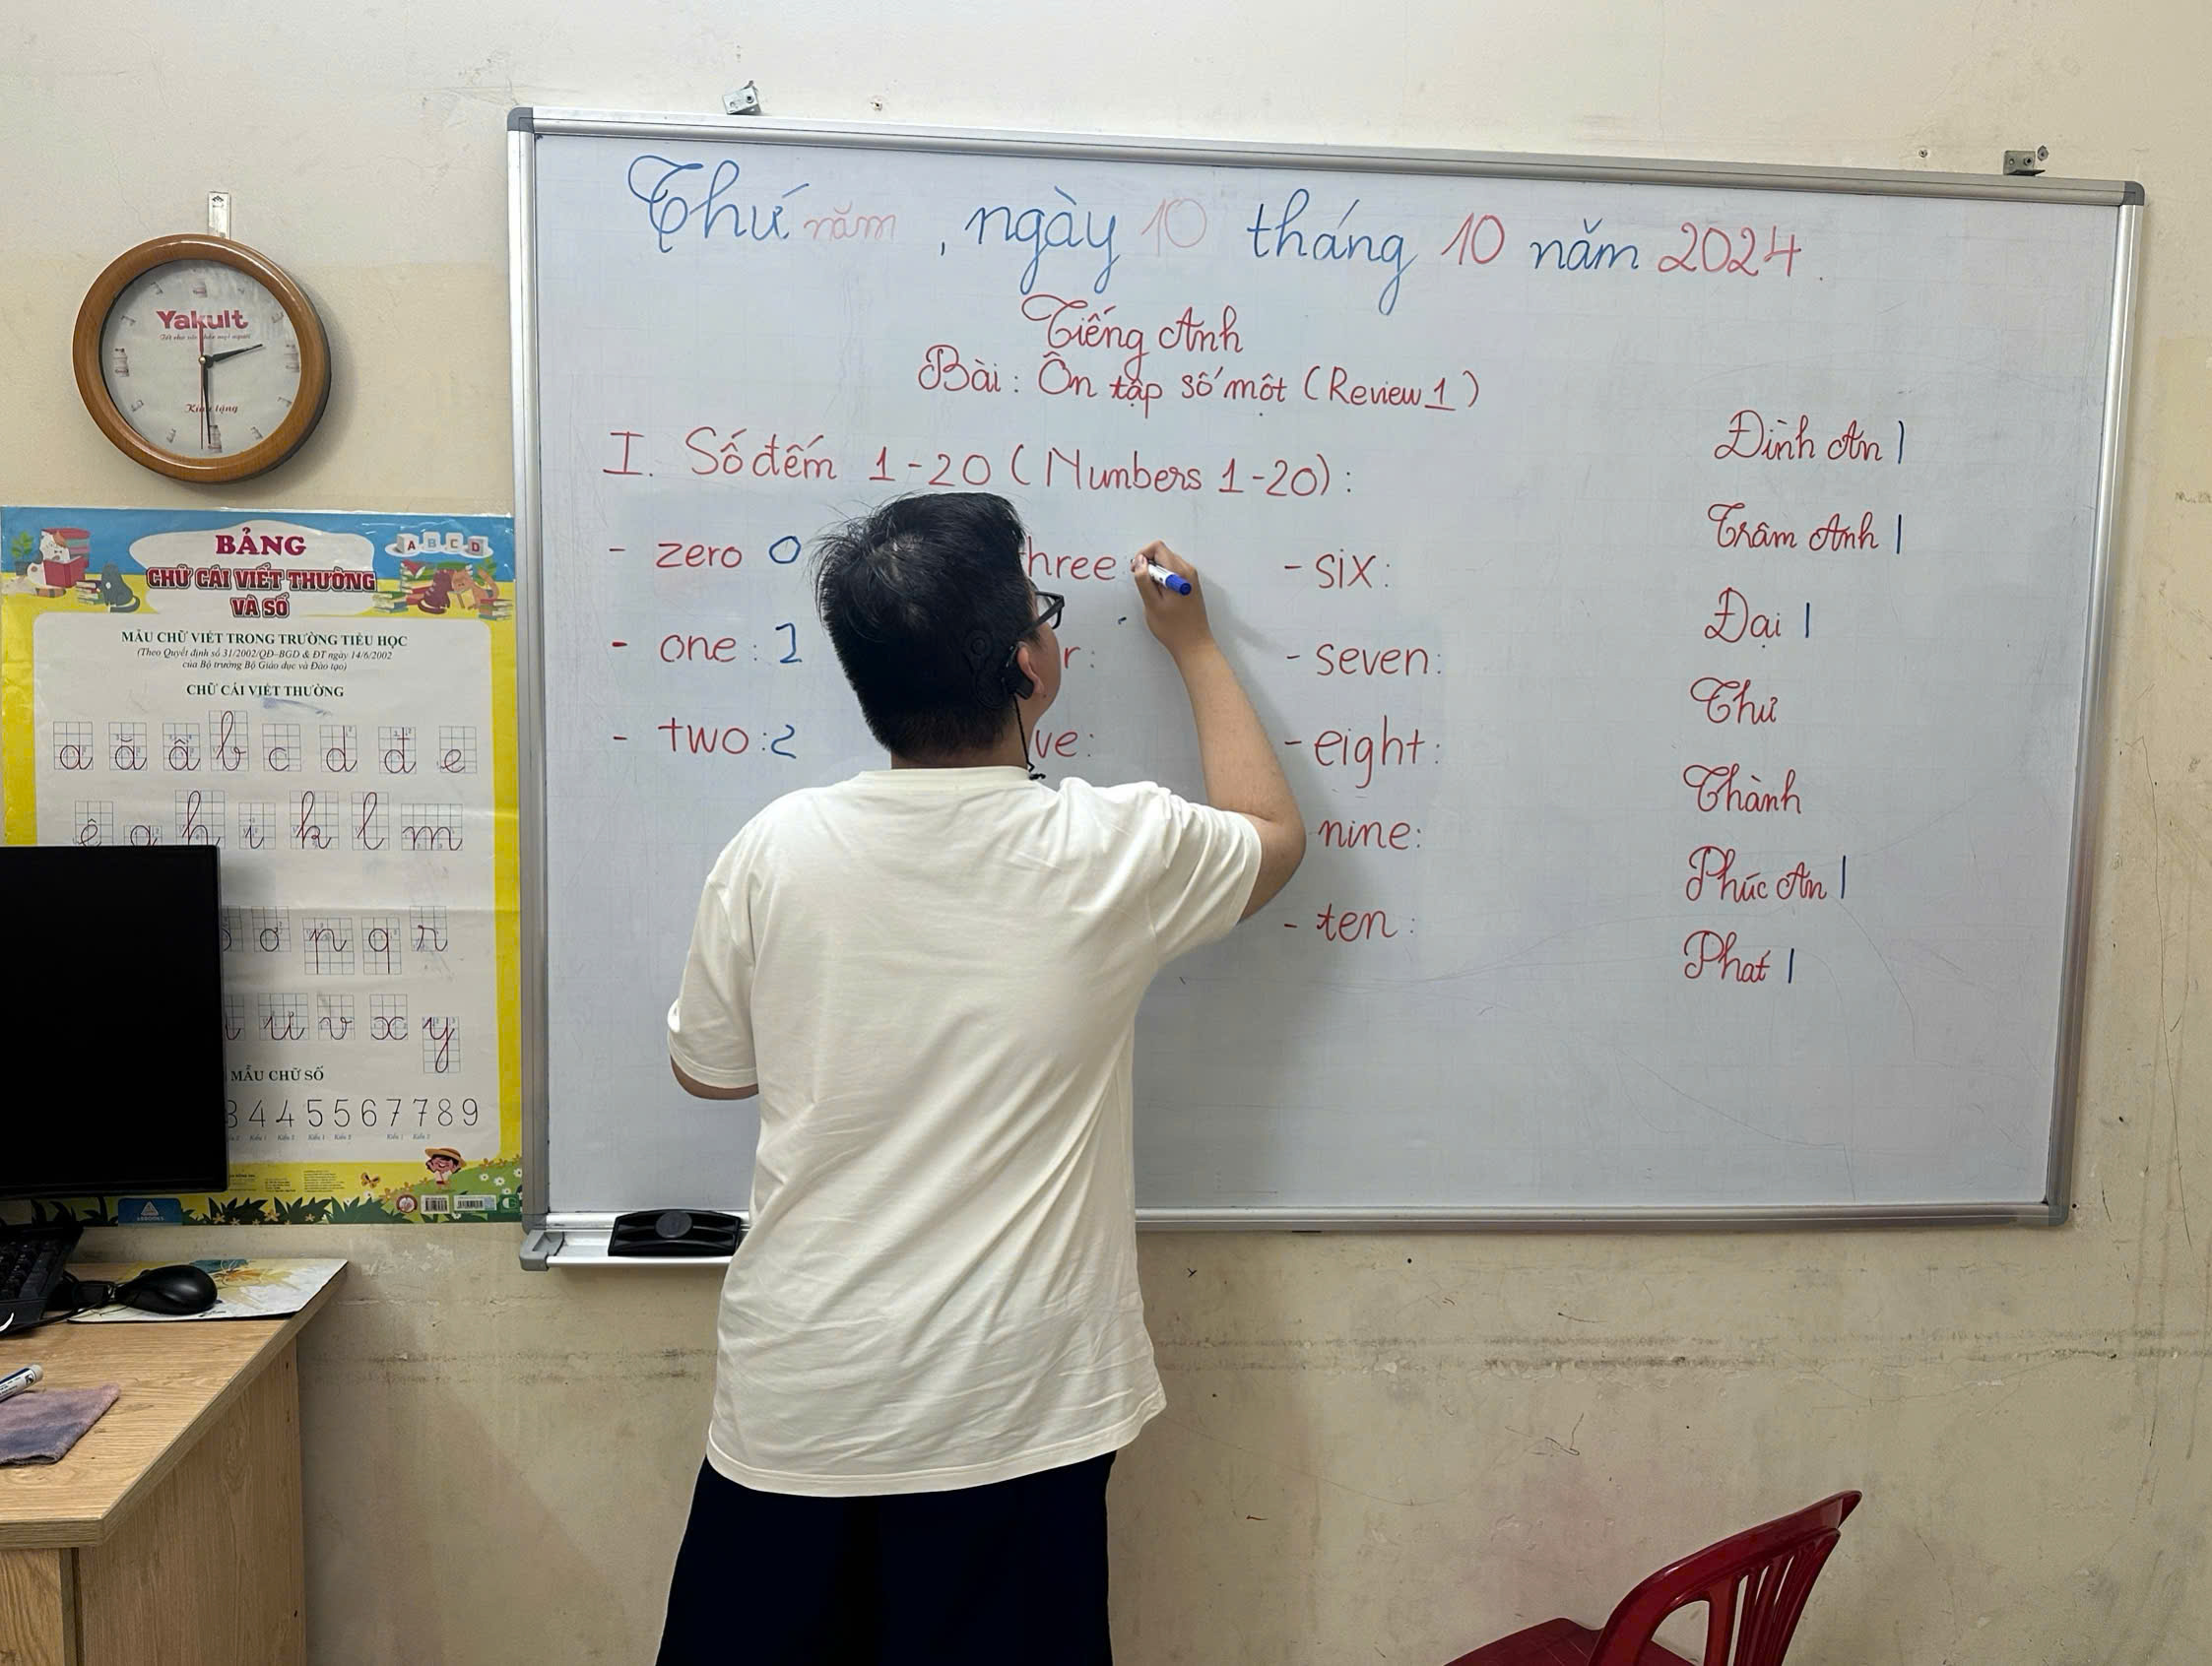 Thứ năm, ngày 10 tháng 10 năm 2024.
Tiếng Anh
Bài: Ôn tập số một (Review 1)
I. Số đếm 1-20 (Numbers 1-20):
- zero 0
- one: 1
- two: 2
hree:
r:
ve:
- six:
- seven:
- eight:
nine:
- ten:
Đình An |
Trâm Anh |
Đại |
Thư
Thành
Phúc An |
Phát |
Yakult
BẢNG
CHỮ CÁI VIẾT THƯỜNG
VÀ SỐ
A B C D
MẪU CHỮ VIẾT TRONG TRƯỜNG TIỂU HỌC
(Theo Quyết định số 31/2002/QĐ-BGD & ĐT ngày 14/6/2002
của Bộ trưởng Bộ Giáo dục và Đào tạo)
CHỮ CÁI VIẾT THƯỜNG
a ă â b c d đ e
ê g h i k l m
ơ p q r
ư v x y
MẪU CHỮ SỐ
3 4 4 5 5 6 7 7 8 9